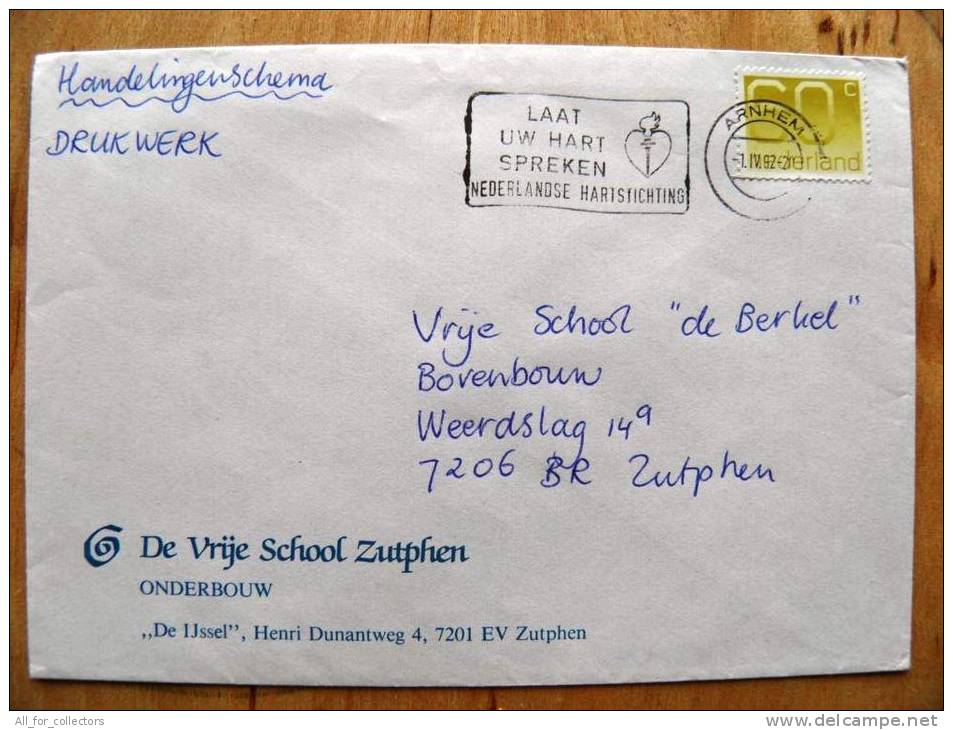 Handelingenschema
DRUKWERK
LAAT
UW HART
SPREKEN
NEDERLANDSE HARTSTICHTING
ARNHEM
-1.IV.92-21
60 c
nederland
Vrije School "de Berkel"
Bovenbouw
Weerdslag 14a
7206 BR Zutphen
De Vrije School Zutphen
ONDERBOUW
„De IJssel”, Henri Dunantweg 4, 7201 EV Zutphen
All_for_collectors
www.delcampe.net